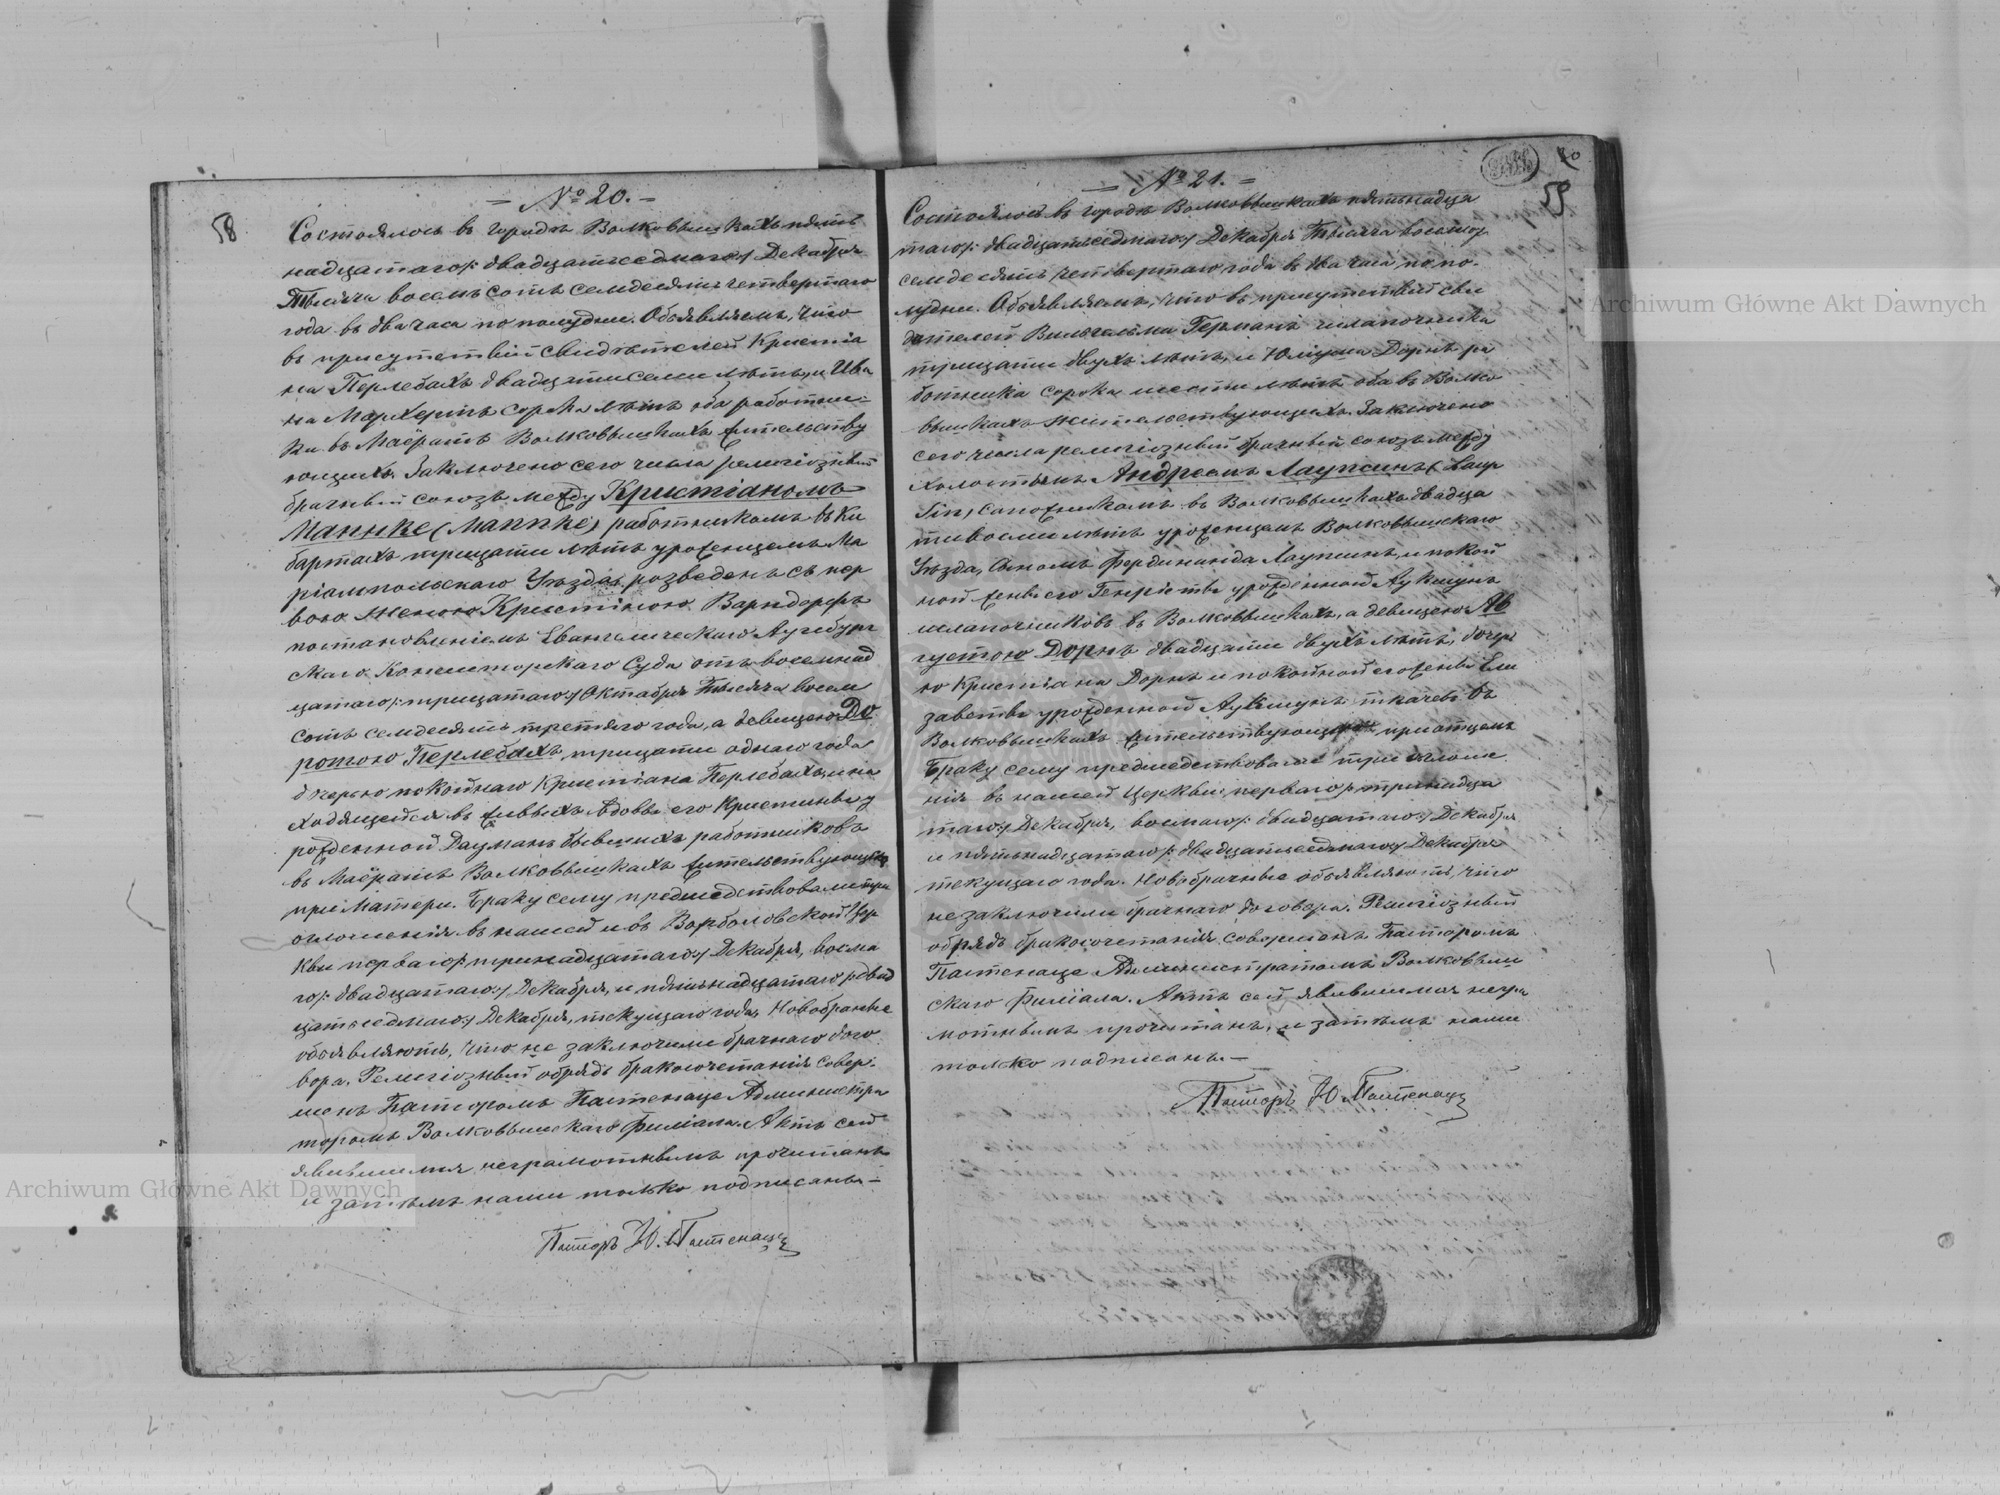 58
= № 20. =
Состоялось в городѣ Волковышкахъ пят
надцатаго /: двадцатьседмаго :/ Декабря
Тысяча восемьсотъ семдесятъ четвертаго
года въ два часа по полудни. Объявляемъ, что
въ присутствіи свидѣтелей Кристіа
на Перлебахъ двадцати семи лѣтъ, и Ива
на Маркертъ сорока лѣтъ оба работни-
ки въ Маёратъ Волковышкахъ жительству
ющихъ. Заключено сего числа религіозный
брачный союзъ между Кристіаномъ
Маннке (Mannke) работникомъ въ Ки
бартахъ тридцати лѣтъ уроженцемъ Ма
ріампольскаго Уѣзда, розведенъ съ пер
вою женою Кристіною Варндорфъ
постановленіемъ Евангелическаго Аугсбург
скаго Консисторскаго Суда отъ восемнад
цатаго /: тридцатаго :/ Октабря Тысяча восем
сотъ семдесятъ третяго года, а девицею До
ротою Перлебахъ, тридцати одного года
дочерью покойнаго Кристіана Перлебахъ, и на
ходящейся въ живыхъ вдовы его Кристины у
рожденной Дауманъ бывшихъ работниковъ
въ Маёратъ Волковышкахъ жительствующею
при Матери. Браку сему предшедствовали три
оглошенія въ нашей и въ Вержболовской Цер
кви перваго /: тринадцатаго :/ Декабря, восма
го /: двадцатаго :/ Декабря, и пятьнадцатаго /: двад
цатьседмаго :/ Декабря, текущаго года. Новобрачные
объявляютъ, что не заключили брачнаго дого
вора. Религіозный обрядъ бракосочетанія совер-
шенъ Пасторомъ Пастенаце Администра
торомъ Волковышскаго Филіала. Актъ сей
явившимся неграмотнымъ прочитанъ
и затѣмъ нами только подписанъ. =
Пасторъ Ю. Пастенаце
59
= № 21. =
Состоялось въ городѣ Волковышкахъ пятьнадца
таго /: двадцатьседмаго :/ Декабря Тысяча восемсот
семдесятъ четвертаго года въ два часа по по-
лудни. Объявляемъ, что въ присутствіи сви
дѣтелей Вильгельма Германъ шлапочника
тридцати двухъ лѣтъ, и Юліуша Дорнъ ра
ботника сорока шести лѣтъ оба въ Волко
вышкахъ жительствующихъ. Заключено
сего числа религіозный брачный союзъ между
холостымъ Андреемъ Лаупсинъ (Laup
sin) сапожникомъ въ Волковышкахъ двадца
ти восми лѣтъ уроженцемъ Волковышскаго
Уѣзда, сыномъ Фердинанда Лаупсинъ, и покой
ной жены его Генріеты урожденной Аукшунъ
шлапочниковъ въ Волковышкахъ, а девицею Ав
густою Дорнъ двадцати двухъ лѣтъ, дочер
ю Кристіана Дорнъ и покойной его жены Ели
заветы урожденной Аукшунъ ткачевъ въ
Волковышкахъ жительствующею при отцемъ
Браку сему предшедствовали три оглоше
нія въ нашей Церкви: перваго /: тринадца
таго :/ Декабря, восмаго /: двадцатаго :/ Декабря
и пятьнадцатаго /: двадцатьседмаго :/ Декабря
текущаго года. Новобрачные объявляютъ, что
не заключили брачнаго договора. Религіозный
обрядъ бракосочетанія совершенъ Пасторомъ
Пастенаце Администраторомъ Волковыш
скаго Филіала. Актъ сей явившимся негра
мотнымъ прочитанъ, и затѣмъ нами
только подписанъ. —
Пасторъ Ю. Пастенаце
Archiwum Główne Akt Dawnych
Archiwum Główne Akt Dawnych